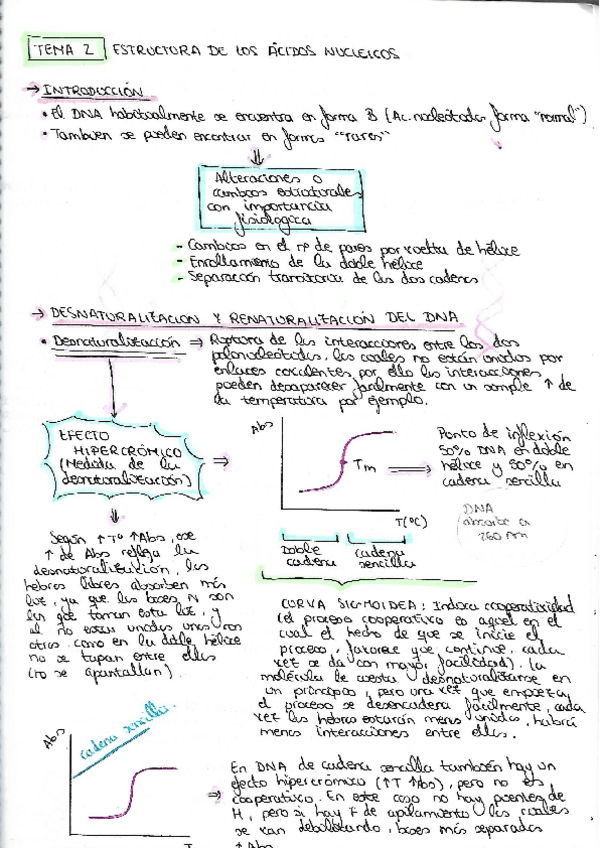 TEMA 2 ESTRUCTURA DE LOS ÁCIDOS NUCLEICOS
→ INTRODUCCIÓN
• El DNA habitualmente se encuentra en forma B (Ac. nucleicos forma "normal")
• Tambien se pueden encontrar en formas "raras"
Alteraciones o
cambios estructurales
con importancia
fisiologica
- Cambios en el nº de pares por vuelta de hélice
- Enrollamiento de la doble hélice
- Separación transitoria de las dos cadenas
→ DESNATURALIZACION Y RENATURALIZACIÓN DEL DNA
• Desnaturalización ⇒ Ruptura de las interacciones entre los dos
polinucleótidos, los cuales no están unidos por
enlaces covalentes por ello las interacciones
pueden desaparecer facilmente con un simple ↑ de
la temperatura por ejemplo.
EFECTO
HIPERCRÓMICO
(Medida de la
desnaturalización)
⇒
Abs
Tm
T(ºC)
Doble
cadena
cadena
sencilla
Punto de inflexión
50% DNA en doble
hélice y 50% en
cadena sencilla
DNA
absorbe a
260 nm
Según ↑Tº ↑Abs, ese
↑ de Abs refleja la
desnaturalización, las
hebras libres absorben más
luz, ya que las bases N son
las que toman esta luz, y
al no estar unidas unas con
otras como en la doble hélice
no se tapan entre ellas
(no se apantallan).
CURVA SIGMOIDEA: Indica cooperatividad
(el proceso cooperativo es aquel en el
cual el hecho de que se inicie el
proceso, favorece que continue, cada
vez se da con mayor facilidad). La
molécula le cuesta desnaturalizarse en
un principio, pero una vez que empieza
el proceso se desencadena facilmente, cada
vez las hebras estarán menos unidas, habrá
menos interacciones entre ellas.
Abs
cadena sencilla
T
En DNA de cadena sencilla también hay un
efecto hipercrómico (↑T ↑Abs), pero no es
⇒ cooperativo. En este caso no hay puentes de
H, pero si hay F de apilamiento las cuales
se van debilitando, bases más separadas
↑ Abs